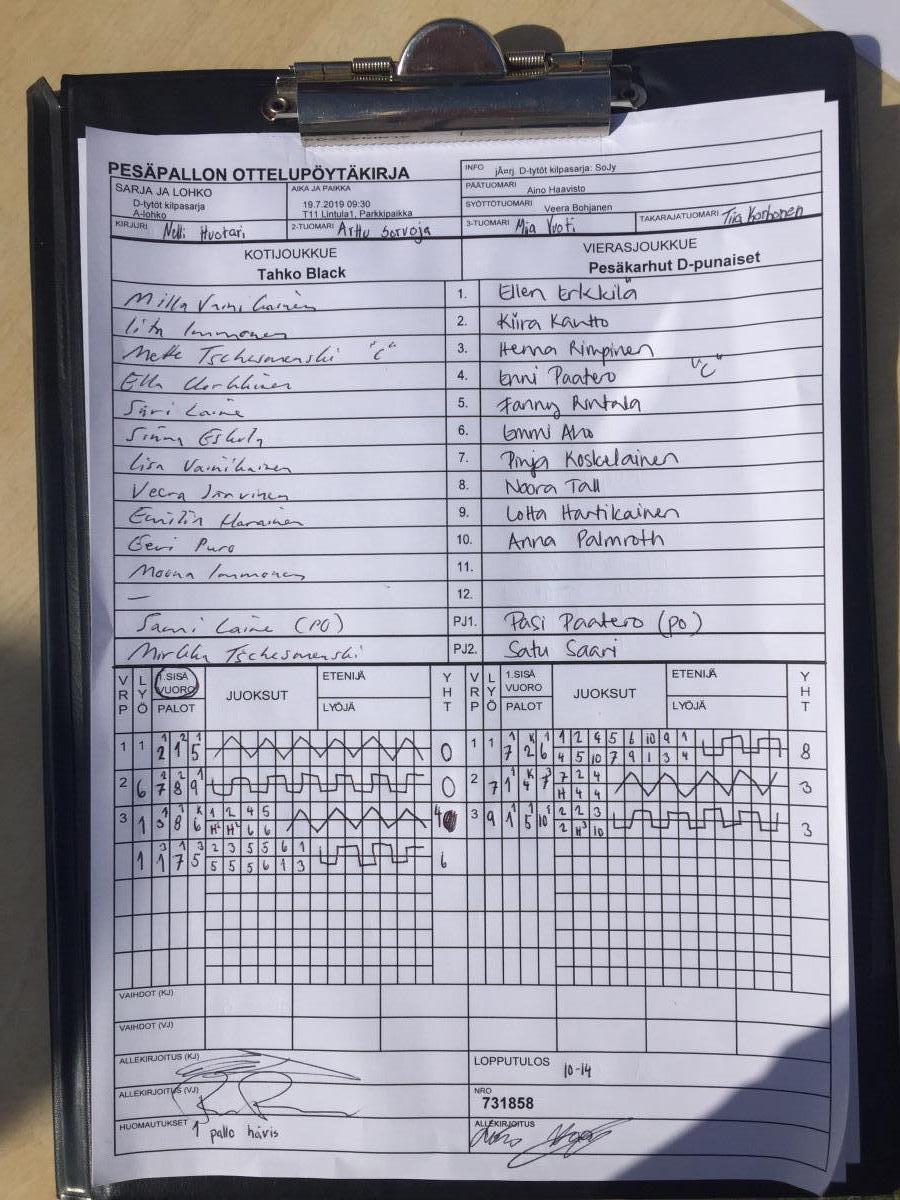 PESÄPALLON OTTELUPÖYTÄKIRJA
INFO jÃ¤rj. D-tytöt kilpasarja: SoJy
SARJA JA LOHKO
D-tytöt kilpasarja
A-lohko
AIKA JA PAIKKA
19.7.2019 09:30
T11 Lintula1, Parkkipaikka
PÄÄTUOMARI Aino Haavisto
SYÖTTÖTUOMARI Veera Bohjanen
KIRJURI Nelli Huotari
2-TUOMARI Arttu Sorvoja
3-TUOMARI Mia Vuoti
TAKARAJATUOMARI Tiia Korhonen
KOTIJOUKKUE
Tahko Black
VIERASJOUKKUE
Pesäkarhut D-punaiset
Milla Vainikainen 1. Ellen Erkkilä
Iita Immonen 2. Kiira Kantto
Mette Tschesmenski "C" 3. Henna Rimpinen
Ella 4. Enni Paatero "C"
Siiri Laine 5. Fanny Rintala
Sinna Eskola 6. Emmi Aho
Lisa Vainikainen 7. Pinja Koskelainen
Veera Järvinen 8. Noora Tall
Emilia 9. Lotta Hartikainen
Eevi Puro 10. Anna Palmroth
Moona Immonen 11.
– 12.
Sami Laine (PO) PJ1. Pasi Paatero (PO)
Mirkka Tschesmenski PJ2. Satu Saari
VRP LYÖ 1.SISÄ VUORO PALOT JUOKSUT ETENIJÄ LYÖJÄ YHT VRP LYÖ 1.SISÄ VUORO PALOT JUOKSUT ETENIJÄ LYÖJÄ YHT
1 1 2 1 5 0
1 1 7 2 6 1 2 4 5 6 10 9 1 8
4 5 10 7 9 1 3 4
2 6 7 8 9 0
2 7 1 4 7 7 2 4 3
H 4 4
3 1 3 8 6 1 2 4 5 4
H H 6 6
3 9 1 5 10 2 2 3 3
2 H 10
1 1 7 5 2 3 5 5 6 1 6
5 5 5 6 1 3
VAIHDOT (KJ)
VAIHDOT (VJ)
ALLEKIRJOITUS (KJ)
LOPPUTULOS 10-14
ALLEKIRJOITUS (VJ)
NRO
731858
HUOMAUTUKSET 1 pallo hävis
ALLEKIRJOITUS